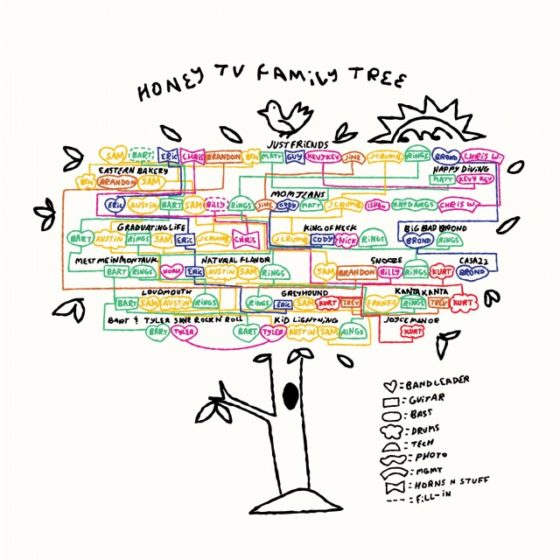 HONEY TV FAMILY TREE
JUST FRIENDS
SAM BART ERIC CHRIS BRANDON BEN MATT GUY KEVYKEV JINE JCRUMB RINGS BROND CHRIS W.
EASTERN BAKERY HAPPY DIVING
BEN BRANDON SAM MATT KEVY KEV
MOM JEANS
ERIC AUSTIN BART SAM BILLY RINGS JINE CODY MATT JCRUMB CHRIS W.
GRADUATING LIFE KING OF HECK BIG BAD BROND
BART AUSTIN RINGS SAM ERIC JCRUMB CHRIS JCRUMB CODY NICK RINGS BROND RINGS
MEET ME IN MONTAUK NATURAL FLAVOR SNOOZE CASA22
BART RINGS NOAH ERIC AUSTIN SAM RINGS SAM BRANDON BILLY RINGS KURT BROND
LOUDMOUTH GREYHOUND KANTA KANTA
BART SAM AUSTIN RINGS RINGS ERIC SAM KURT TREV SPANKY RINGS TREV KURT
BART & TYLER SAVE ROCK N' ROLL KID LIGHTNING JOYCE MANOR
BART TYLER BART TYLER AUSTIN SAM RINGS KURT
= BANDLEADER
= GUITAR
= BASS
= DRUMS
= TECH
= PHOTO
= MGMT
= HORNS N STUFF
= FILL-IN